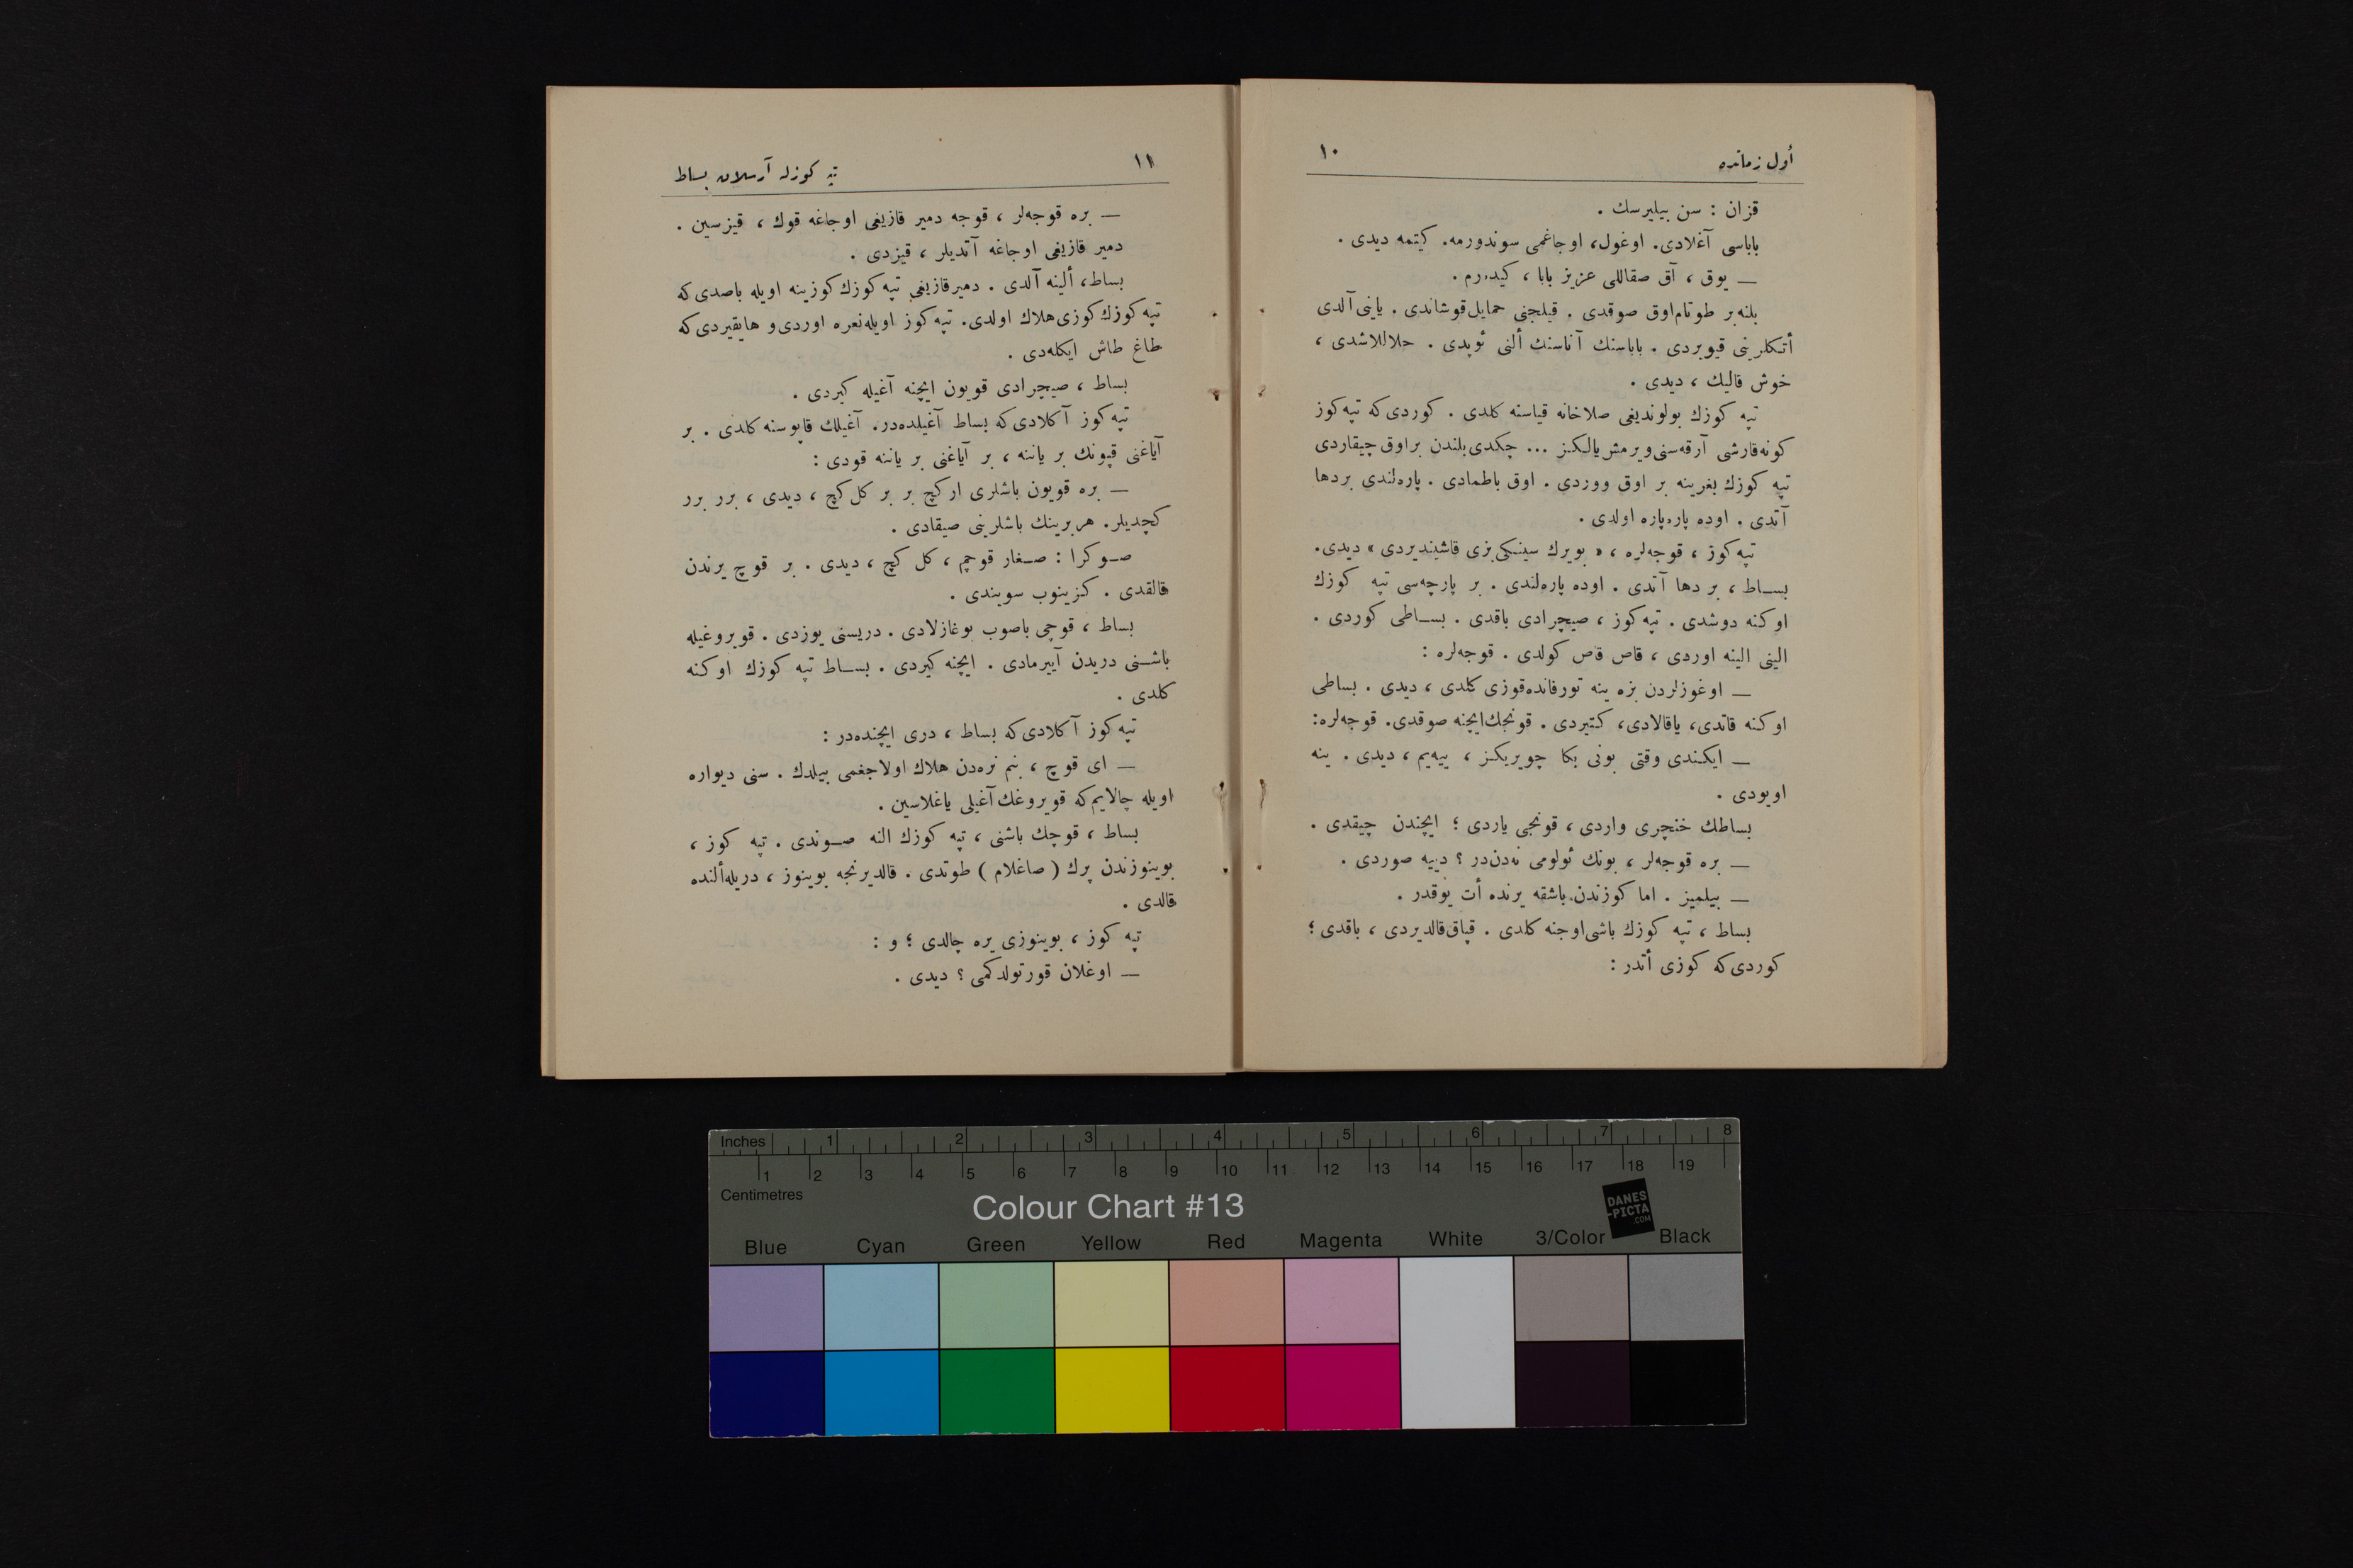 أول زمانده
١٠
قزان : سن بيليرسك .
باباسى آغلادى. اوغول، اوجاغمى سوندورمه. كيتمه ديدى .
— يوق ، آق صقاللى عزيز بابا ، كيده‌رم .
بلنه‌بر طوتام‌اوق صوقدى . قيلجنى حمايل‌قوشاندى . ياينى‌آلدى
أتكلرينى قيويردى . باباسنك آناسنك ألنى ئوپدى . حلاللاشدى ،
خوش قاليك ، ديدى .
تپه كوزك بولونديغى صلاخانه قياسنه كلدى . كوردى‌كه تپه‌كوز
كونه‌قارشى آرقه‌سنى‌ويرمش‌يالكز ... چكدى‌بلندن براوق‌چيقاردى
تپه كوزك بغرينه بر اوق ووردى . اوق باطمادى . پاره‌لندى بردها
آتدى . اوده پاره‌پاره اولدى .
تپه كوز ، قوجه‌لره ، « بويرك سينكى‌بزى قاشينديردى » ديدى.
بساط ، بر دها آتدى . اوده پاره‌لندى . بر پارچه‌سى تپه كوزك
اوكنه دوشدى . تپه‌كوز ، صيچرادى باقدى . بساطى كوردى .
الينى الينه اوردى ، قاص قاص كولدى . قوجه‌لره :
— اوغوزلردن بزه ينه تورفانده‌قوزى‌كلدى ، ديدى . بساطى
اوكنه قاتدى، ياقالادى، كتيردى . قونجك‌ايچنه صوقدى. قوجه‌لره:
— ايكندى وقتى بونى بكا چويريكز ، ييه‌يم ، ديدى . ينه
اويودى .
بساطك خنچرى واردى ، قونجى ياردى ؛ ايچندن چيقدى .
— بره قوجه‌لر ، بونك ئولومى نه‌دن‌در ؟ دييه صوردى .
— بيلميز . اما كوزندن باشقه يرنده أت يوقدر .
بساط ، تپه كوزك باشى‌اوجنه كلدى . قپاق‌قالديردى ، باقدى ؛
كوردى‌كه كوزى أتدر :
١١
تپه كوزله آرسلان بساط
— بره قوجه‌لر ، قوجه دمير قازيغى اوجاغه قوك ، قيزسين .
دمير قازيغى اوجاغه آتديلر ، قيزدى .
بساط، ألينه آلدى . دميرقازيغى تپه كوزك كوزينه اويله باصدى‌كه
تپه كوزك كوزى‌هلاك اولدى. تپه كوز اويله‌نعره اوردى‌و هايقيردى‌كه
طاغ طاش ايكله‌دى .
بساط ، صيچرادى قويون ايچنه آغيله كيردى .
تپه كوز آكلادى‌كه بساط آغيلده‌در. آغيلك قاپوسنه كلدى . بر
آياغنى قپونك بر ياننه ، بر آياغنى بر ياننه قودى :
— بره قويون باشلرى اركچ بر بر كل‌كچ ، ديدى ، برر برر
كچديلر. هربرينك باشلرينى صيقادى .
صوكرا : صغار قوچم ، كل كچ ، ديدى . بر قوچ يرندن
قالقدى . كزينوب سويندى .
بساط ، قوچى باصوب بوغازلادى . دريسنى يوزدى . قويروغيله
باشنى دريدن آييرمادى . ايچنه كيردى . بساط تپه كوزك اوكنه
كلدى .
تپه كوز آكلادى‌كه بساط ، درى ايچنده‌در :
— اى قوچ ، بنم نره‌دن هلاك اولاجغمى بيلدك . سنى ديواره
اويله چالايم‌كه قويروغك‌آغيلى ياغلاسين .
بساط ، قوچك باشنى ، تپه كوزك النه صوندى . تپه كوز ،
بوينوزندن پرك ( صاغلام ) طوتدى . قالديرنجه بوينوز ، دريله‌ألنده
قالدى .
تپه كوز ، بوينوزى يره چالدى ؛ و :
— اوغلان قورتولدكمى ؟ ديدى .
Inches 1 2 3 4 5 6 7 8
1 2 3 4 5 6 7 8 9 10 11 12 13 14 15 16 17 18 19
Centimetres
Colour Chart #13
DANES
-PICTA
.COM
Blue Cyan Green Yellow Red Magenta White 3/Color Black